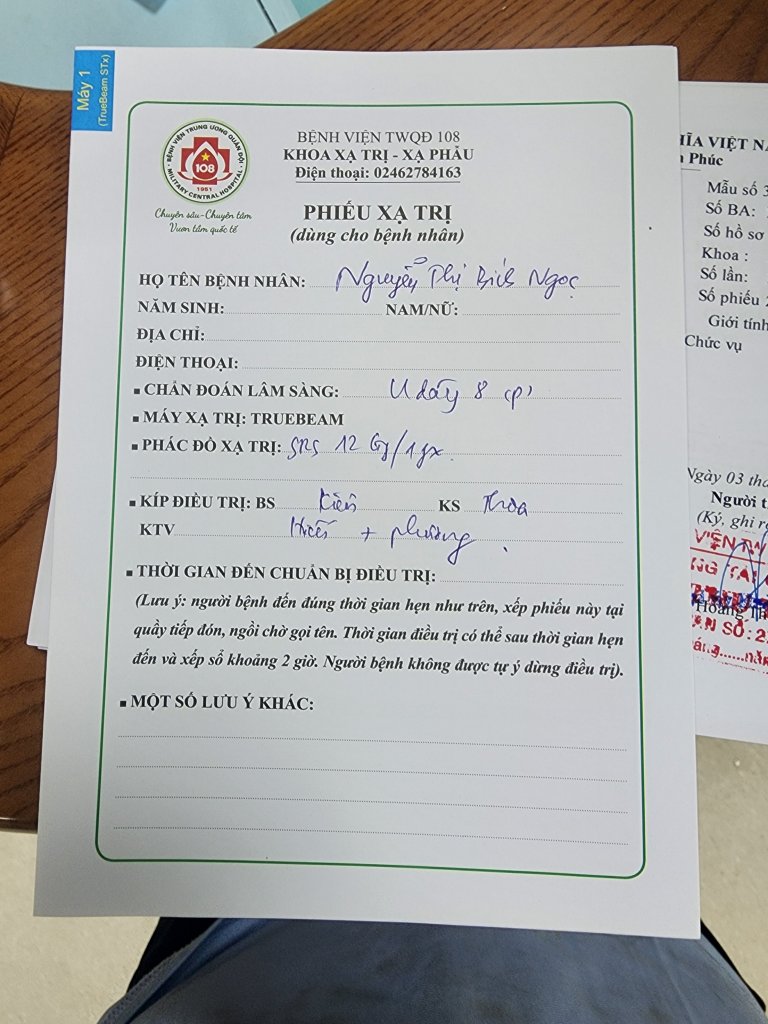 Máy 1
(TrueBeam STx)
BỆNH VIỆN TRUNG ƯƠNG QUÂN ĐỘI
108
1951
MILITARY CENTRAL HOSPITAL
Chuyên sâu-Chuyên tâm
Vươn tầm quốc tế
BỆNH VIỆN TWQĐ 108
KHOA XẠ TRỊ - XẠ PHẪU
Điện thoại: 02462784163
PHIẾU XẠ TRỊ
(dùng cho bệnh nhân)
HỌ TÊN BỆNH NHÂN: Nguyễn Thị Bích Ngọc
NĂM SINH: NAM/NỮ:
ĐỊA CHỈ:
ĐIỆN THOẠI:
▪ CHẨN ĐOÁN LÂM SÀNG: U dây 8 (P)
▪ MÁY XẠ TRỊ: TRUEBEAM
▪ PHÁC ĐỒ XẠ TRỊ: SRS 12 Gy/1fx.
▪ KÍP ĐIỀU TRỊ: BS Kiên KS Thoa
KTV + Phương.
▪ THỜI GIAN ĐẾN CHUẨN BỊ ĐIỀU TRỊ:
(Lưu ý: người bệnh đến đúng thời gian hẹn như trên, xếp phiếu này tại
quầy tiếp đón, ngồi chờ gọi tên. Thời gian điều trị có thể sau thời gian hẹn
đến và xếp sổ khoảng 2 giờ. Người bệnh không được tự ý dừng điều trị).
▪ MỘT SỐ LƯU Ý KHÁC:
VIỆT
Phúc
Mẫu số
Số BA:
Số hồ sơ
Khoa :
Số lần:
Số phiếu
Giới tính
Chức vụ
Ngày 03
Người
(Ký, ghi
Hoàng